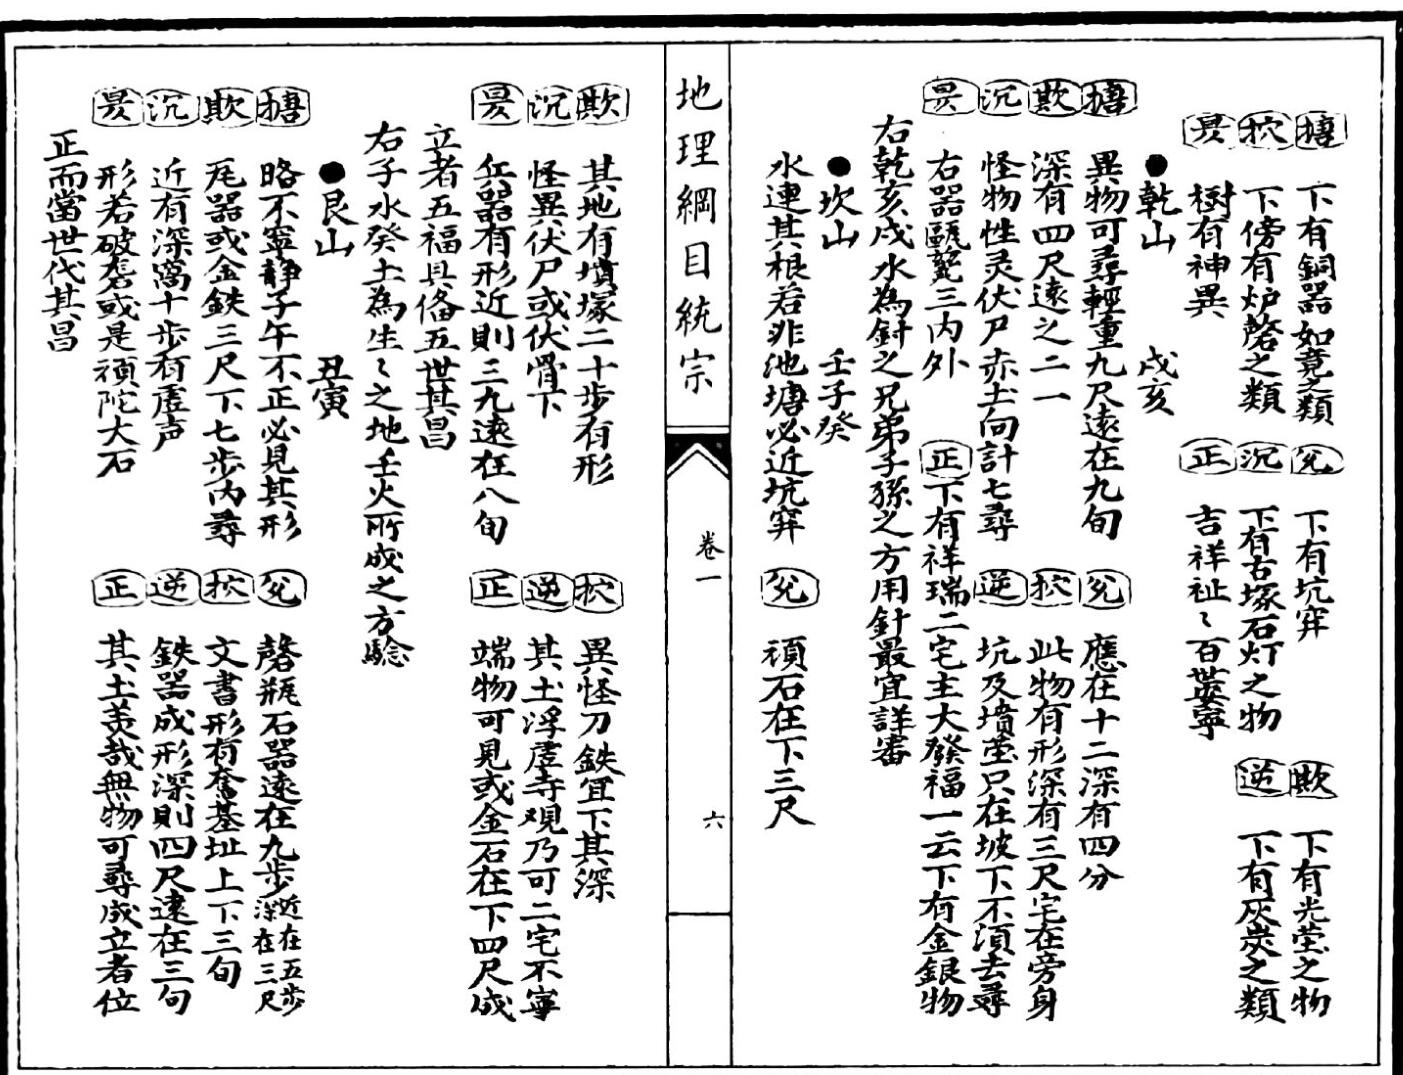 搪 下有銅器如竟之類 兊 下有坑穽 欺 下有光莹之物
㧒 下傍有炉磬之類 沉 下有古塚石灯之物 逆 下有灰炭之類
㫑 樹有神異 正 吉祥祉〻百世安寧
●乾山 戌亥
搪 異物可尋輕重九尺遠在九旬 兊 應在十二深有四分
欺 深有四尺遠之二一 㧒 此物有形深有三尺宅在旁身
沉 怪物性灵伏尸赤土向計七尋 逆 坑及墳茔只在坡下不須去尋
㫑 右器甌甏三内外 正 下有祥瑞二宅主大發福一云下有金銀物
右乾亥戌水為針之兄弟子孫之方用針最宜詳審
●坎山 壬子癸
水連其根若非池塘必近坑穽 兊 頑石在下三尺
地理綱目統宗 卷一 六
欺 其地有墳塚二十步有形 㧒 異怪刀鉄宜下其深
沉 怪異伏尸或伏骨下 逆 其土浮虚寺观乃可二宅不寧
㫑 兵器有形近則三九遠在八旬 正 端物可見或金石在下四尺成
立者五福具俻五世其昌
右子水癸土為生〻之地壬火所成之方驗
●艮山 丑寅
搪 略不寧静子午不正必見其形 兊 磬瓶石器遠在九步近在五步深在三尺
欺 尾器或金鉄三尺下七步内尋 㧒 文書形有奮基址上下三旬
沉 近有深窩十步有虚声 逆 鉄器成形深則四尺遠在三旬
㫑 形若破砻或是頑陀大石 正 其土美哉無物可尋成立者位
正而當世代其昌